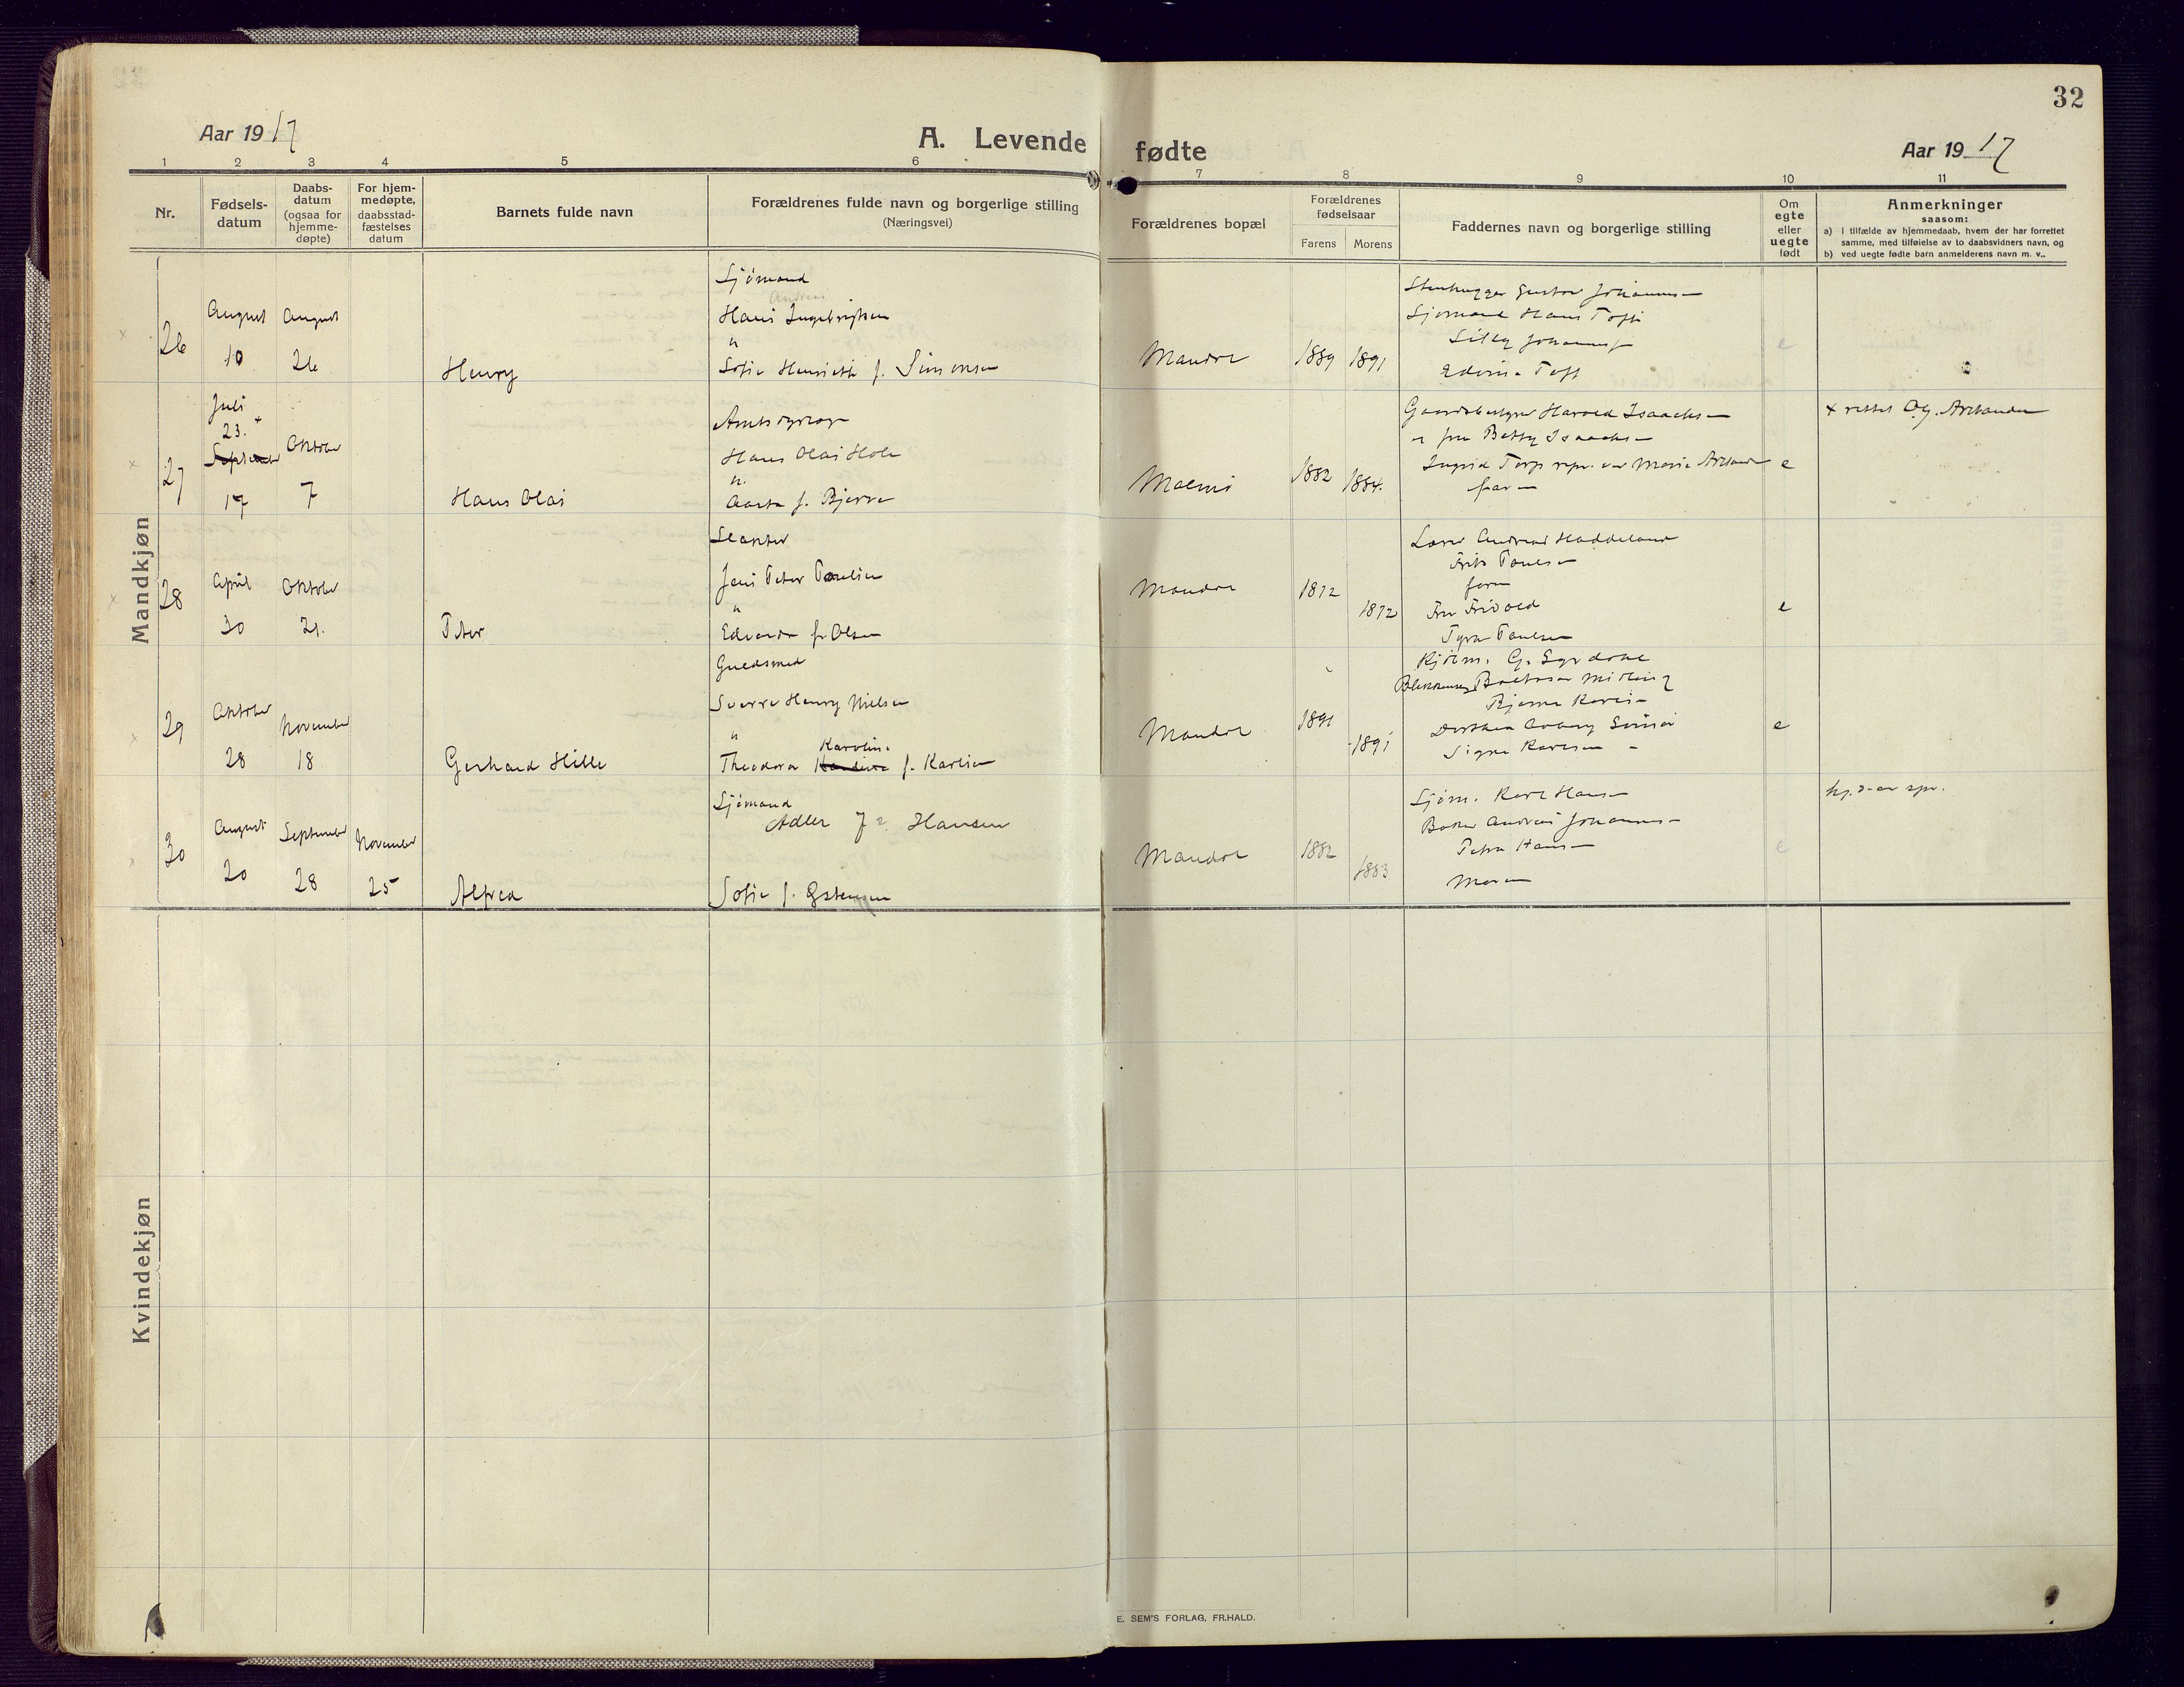 32
Aar 1917
A. Levende fødte
Aar 1917
1 2 3 4 5 6 7 8 9 10 11
Nr.
Fødsels-
datum
Daabs-
datum
(ogsaa for
hjemme-
døpte)
For hjem-
medøpte,
daabsstad-
fæstelses
datum
Barnets fulde navn
Forældrenes fulde navn og borgerlige stilling
(Næringsvei)
Forældrenes bopæl
Forældrenes
fødselsaar
Farens Morens
Faddernes navn og borgerlige stilling
Om
egte
eller
uegte
født
Anmerkninger
saasom:
a) i tilfælde av hjemmedaab, hvem der har forrettet
samme, med tilføielse av to daabsvidners navn, og
b) ved uegte fødte barn anmelderens navn m. v..
Mandkjøn
26
August
10
August
26
Henry
Sjømand
Andreas
Hans Ingebrigtsen
"
Sofie Henriette f. Simonsen
Mandal
1889 1891
Stenhugger Gustav Johannesen
Sjømand Hans Toft
Johannesen
Toft
e
27
Juli
23. +
September
17
Oktober
7
Hans Olai
Hans Olai Holm
f. Bjerre
Malmø
1882 1884.
Harald Isaachsen
fru Betty Isaachsen
Ingrid Torp repr. ved Marie
faren
e
+ rettet
28
April
30
Oktober
21.
Peter
Slakter
Jens Peter Paulsen
"
Edvarda f. Olsen
Mandal
1872
1872
Lærer Andreas Haddeland
Paulsen
faren
Fru
Paulsen
e
29
Oktober
28
November
18
Gerhard Hille
Guldsmed
Sverre Henry Nielsen
"
Karoline
Theodora f. Karlsen
Mandal
1891
1891
Kjøbm. G.
Bjarne Karlsen
Signe Karlsen
e
30
August
20
September
28
November
25
Alfred
Sjømand
Adler Hansen
Sofie f.
Mandal
1882
1883
Sjøm. Karl Hansen
Baker Andreas Johannesen
Petra Hansen
Moren
e
Kvindekjøn
E. SEM'S FORLAG, FR.HALD.